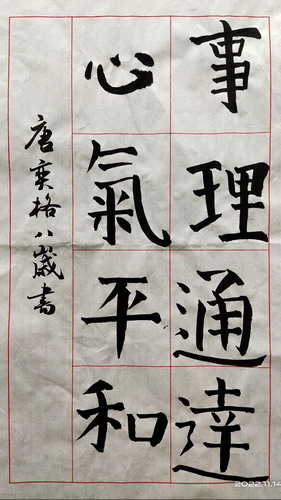 事理通達
心氣平和
唐奕格八歲書
2022.11.14